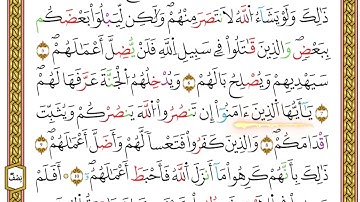 ذَٰلِكَ وَلَوْ يَشَآءُ ٱللَّهُ لَٱنتَصَرَ مِنْهُمْ وَلَٰكِن لِّيَبْلُوَا۟ بَعْضَكُم
بِبَعْضٍ وَٱلَّذِينَ قَٰتَلُوا۟ فِي سَبِيلِ ٱللَّهِ فَلَن يُضِلَّ أَعْمَٰلَهُمْ
سَيَهْدِيهِمْ وَيُصْلِحُ بَالَهُمْ وَيُدْخِلُهُمُ ٱلْجَنَّةَ عَرَّفَهَا لَهُمْ
يَٰٓأَيُّهَا ٱلَّذِينَ ءَامَنُوٓا۟ إِن تَنصُرُوا۟ ٱللَّهَ يَنصُرْكُمْ وَيُثَبِّتْ
أَقْدَامَكُمْ وَٱلَّذِينَ كَفَرُوا۟ فَتَعْسًا لَّهُمْ وَأَضَلَّ أَعْمَٰلَهُمْ
ذَٰلِكَ بِأَنَّهُمْ كَرِهُوا۟ مَآ أَنزَلَ ٱللَّهُ فَأَحْبَطَ أَعْمَٰلَهُمْ أَفَلَمْ